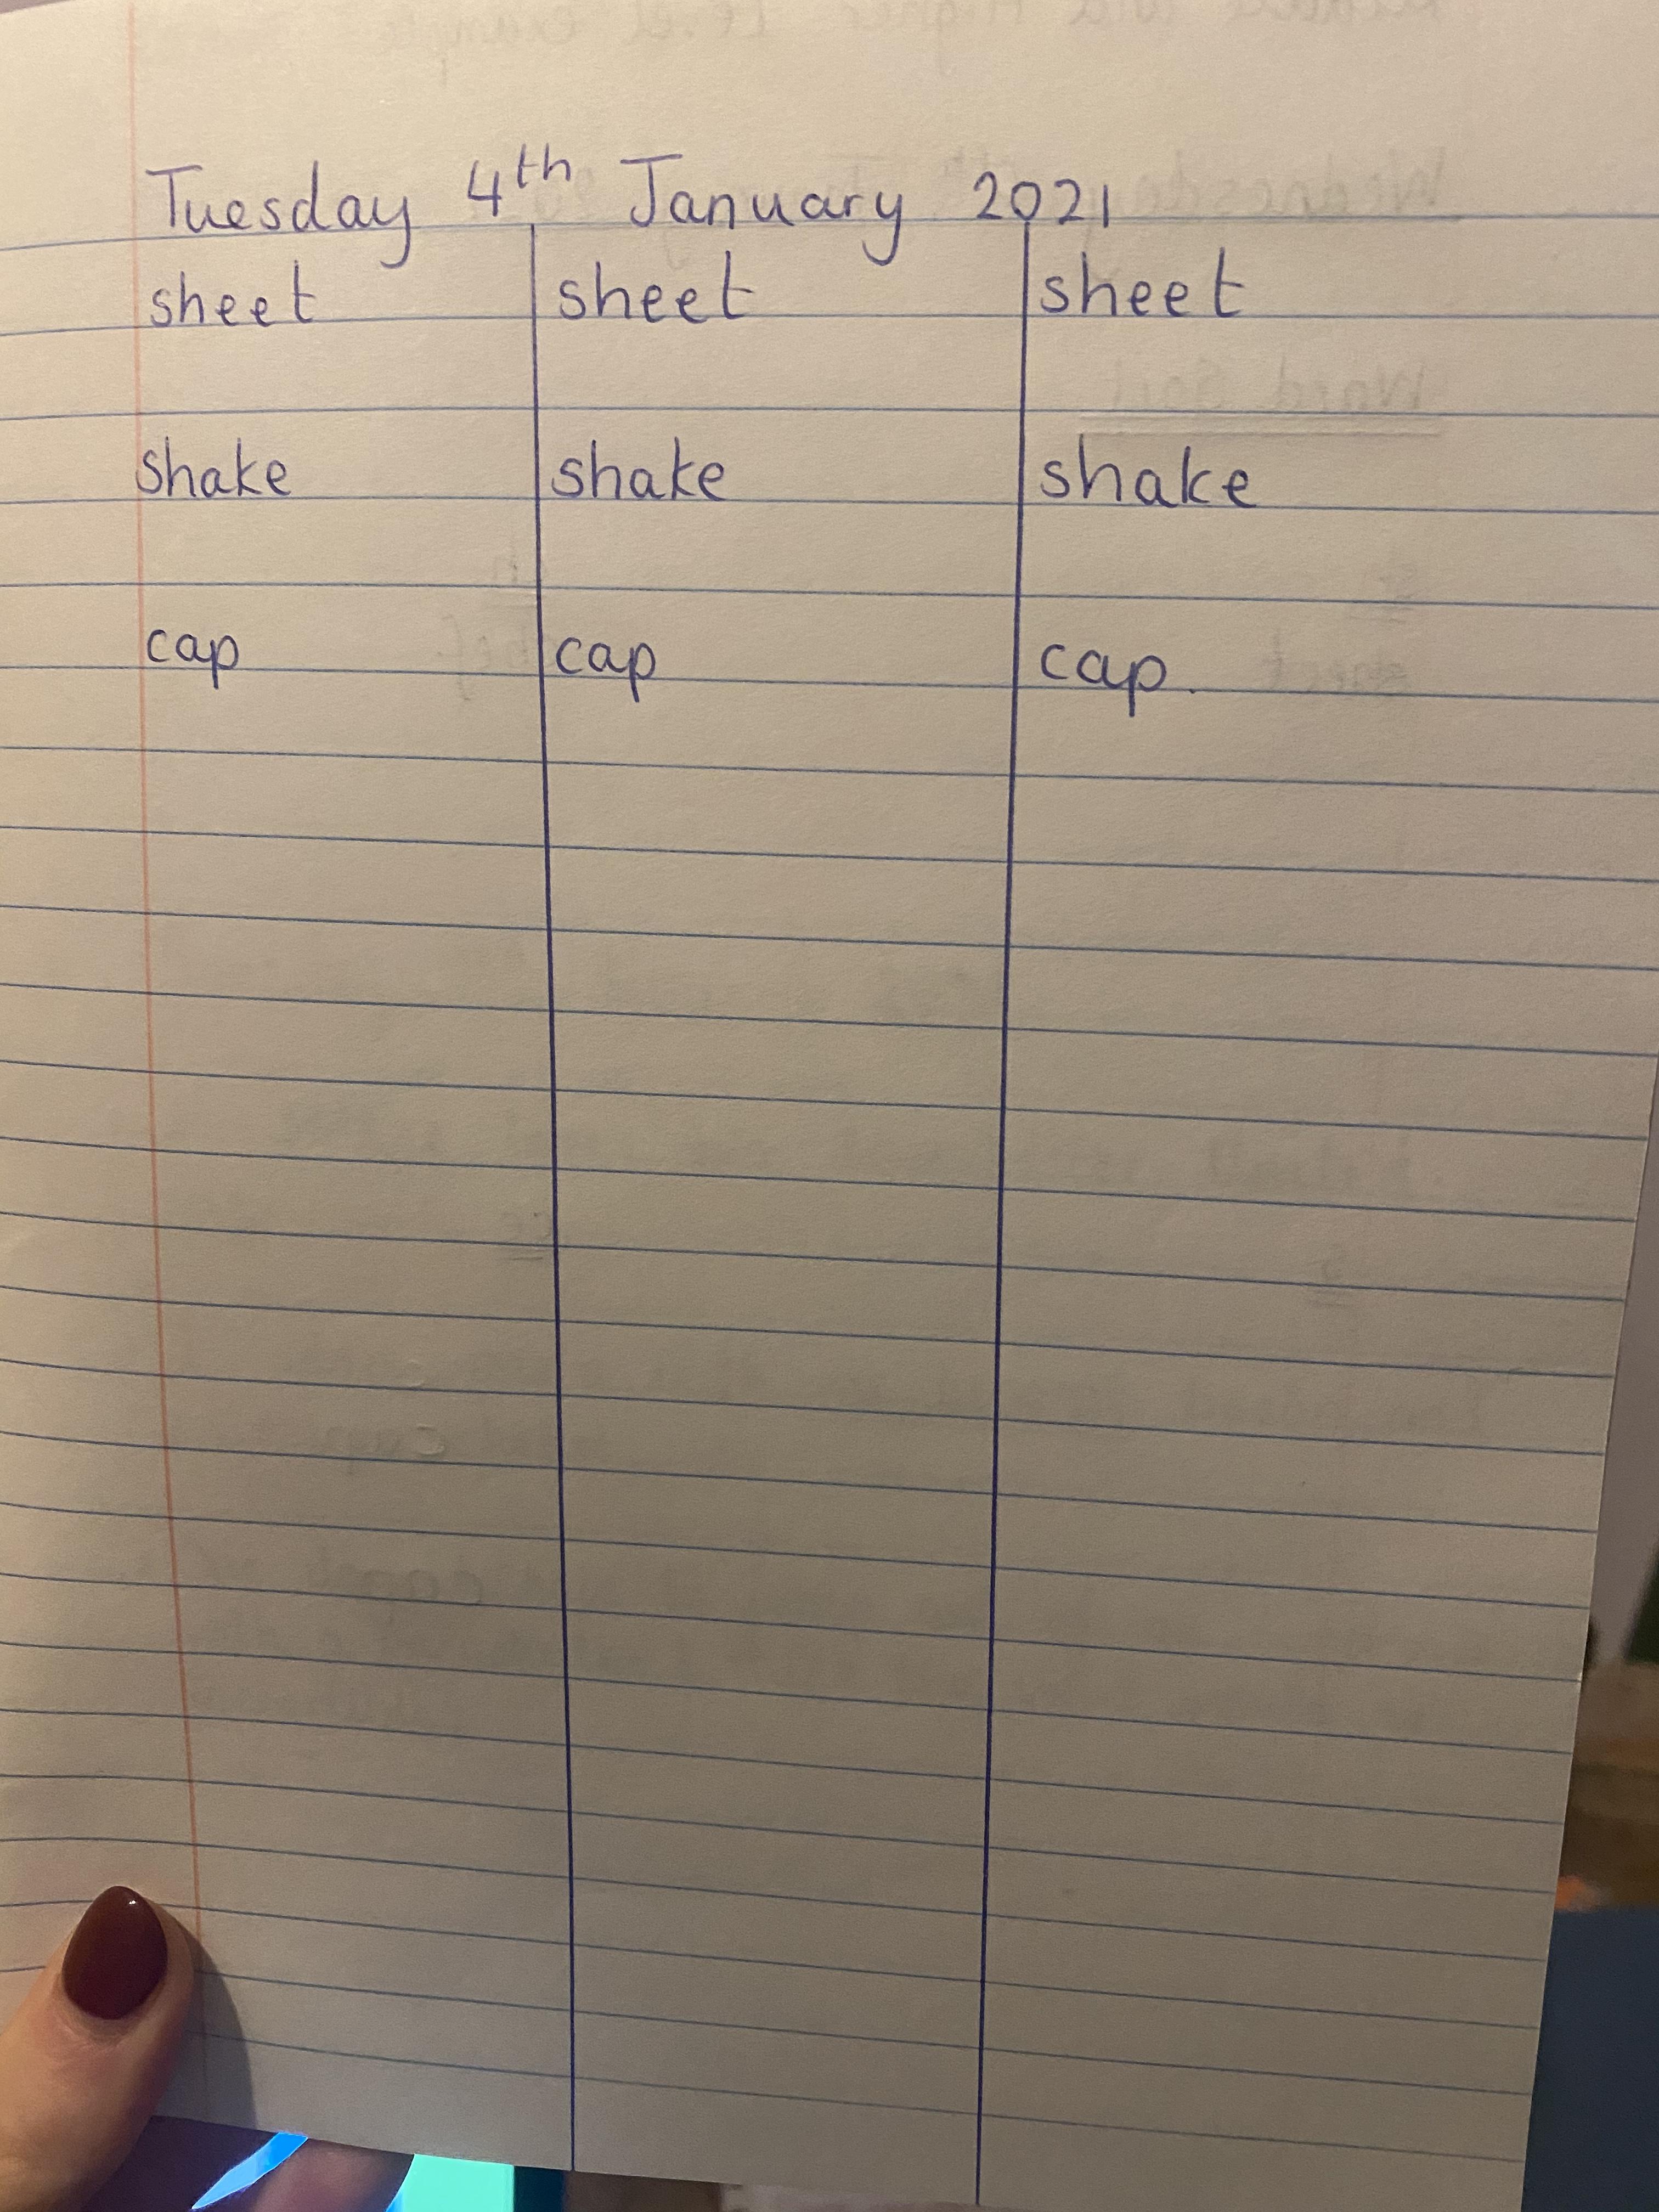 Tuesday 4th January 2021
sheet sheet sheet
shake shake shake
cap cap cap.